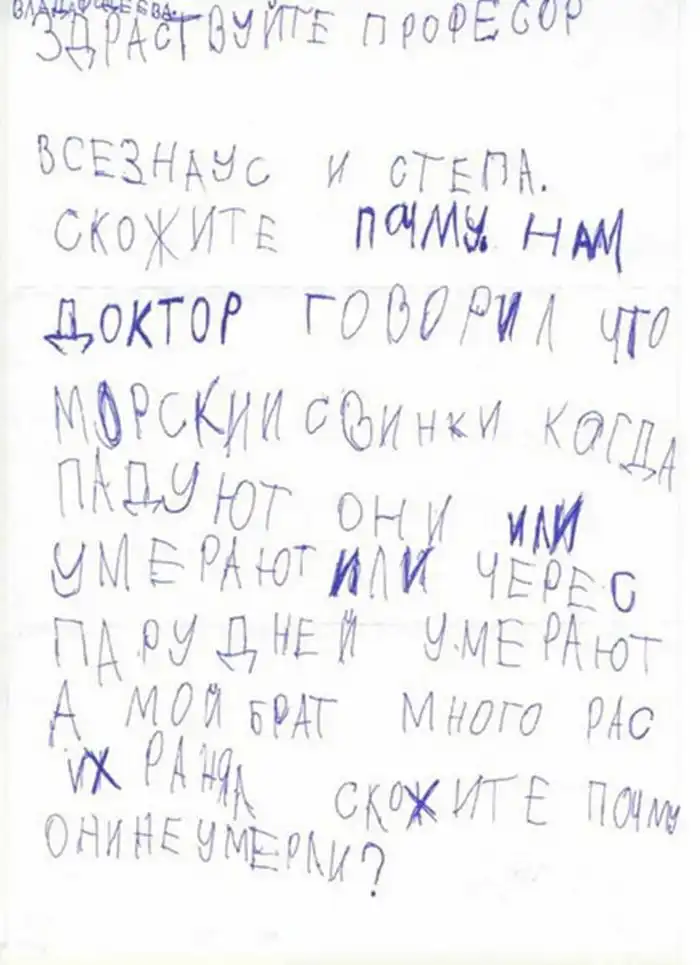 ЗДРАСТВУЙТЕ ПРОФЕСОР
ВСЕЗНАУС И СТЕПА.
СКОЖИТЕ ПОЧМУ. НАМ
ДОКТОР ГОВОРИЛ ЧТО
МОРСКИИ СВИНКИ КОГДА
ПАДУЮТ ОНИ ИЛИ
УМЕРАЮТ ИЛИ ЧЕРЕС
ПАРУ ДНЕЙ УМЕРАЮТ
А МОЙ БРАТ МНОГО РАС
ИХ РАНЯЛ СКОЖИТЕ ПОЧМУ
ОНИ НЕ УМЕРЛИ?